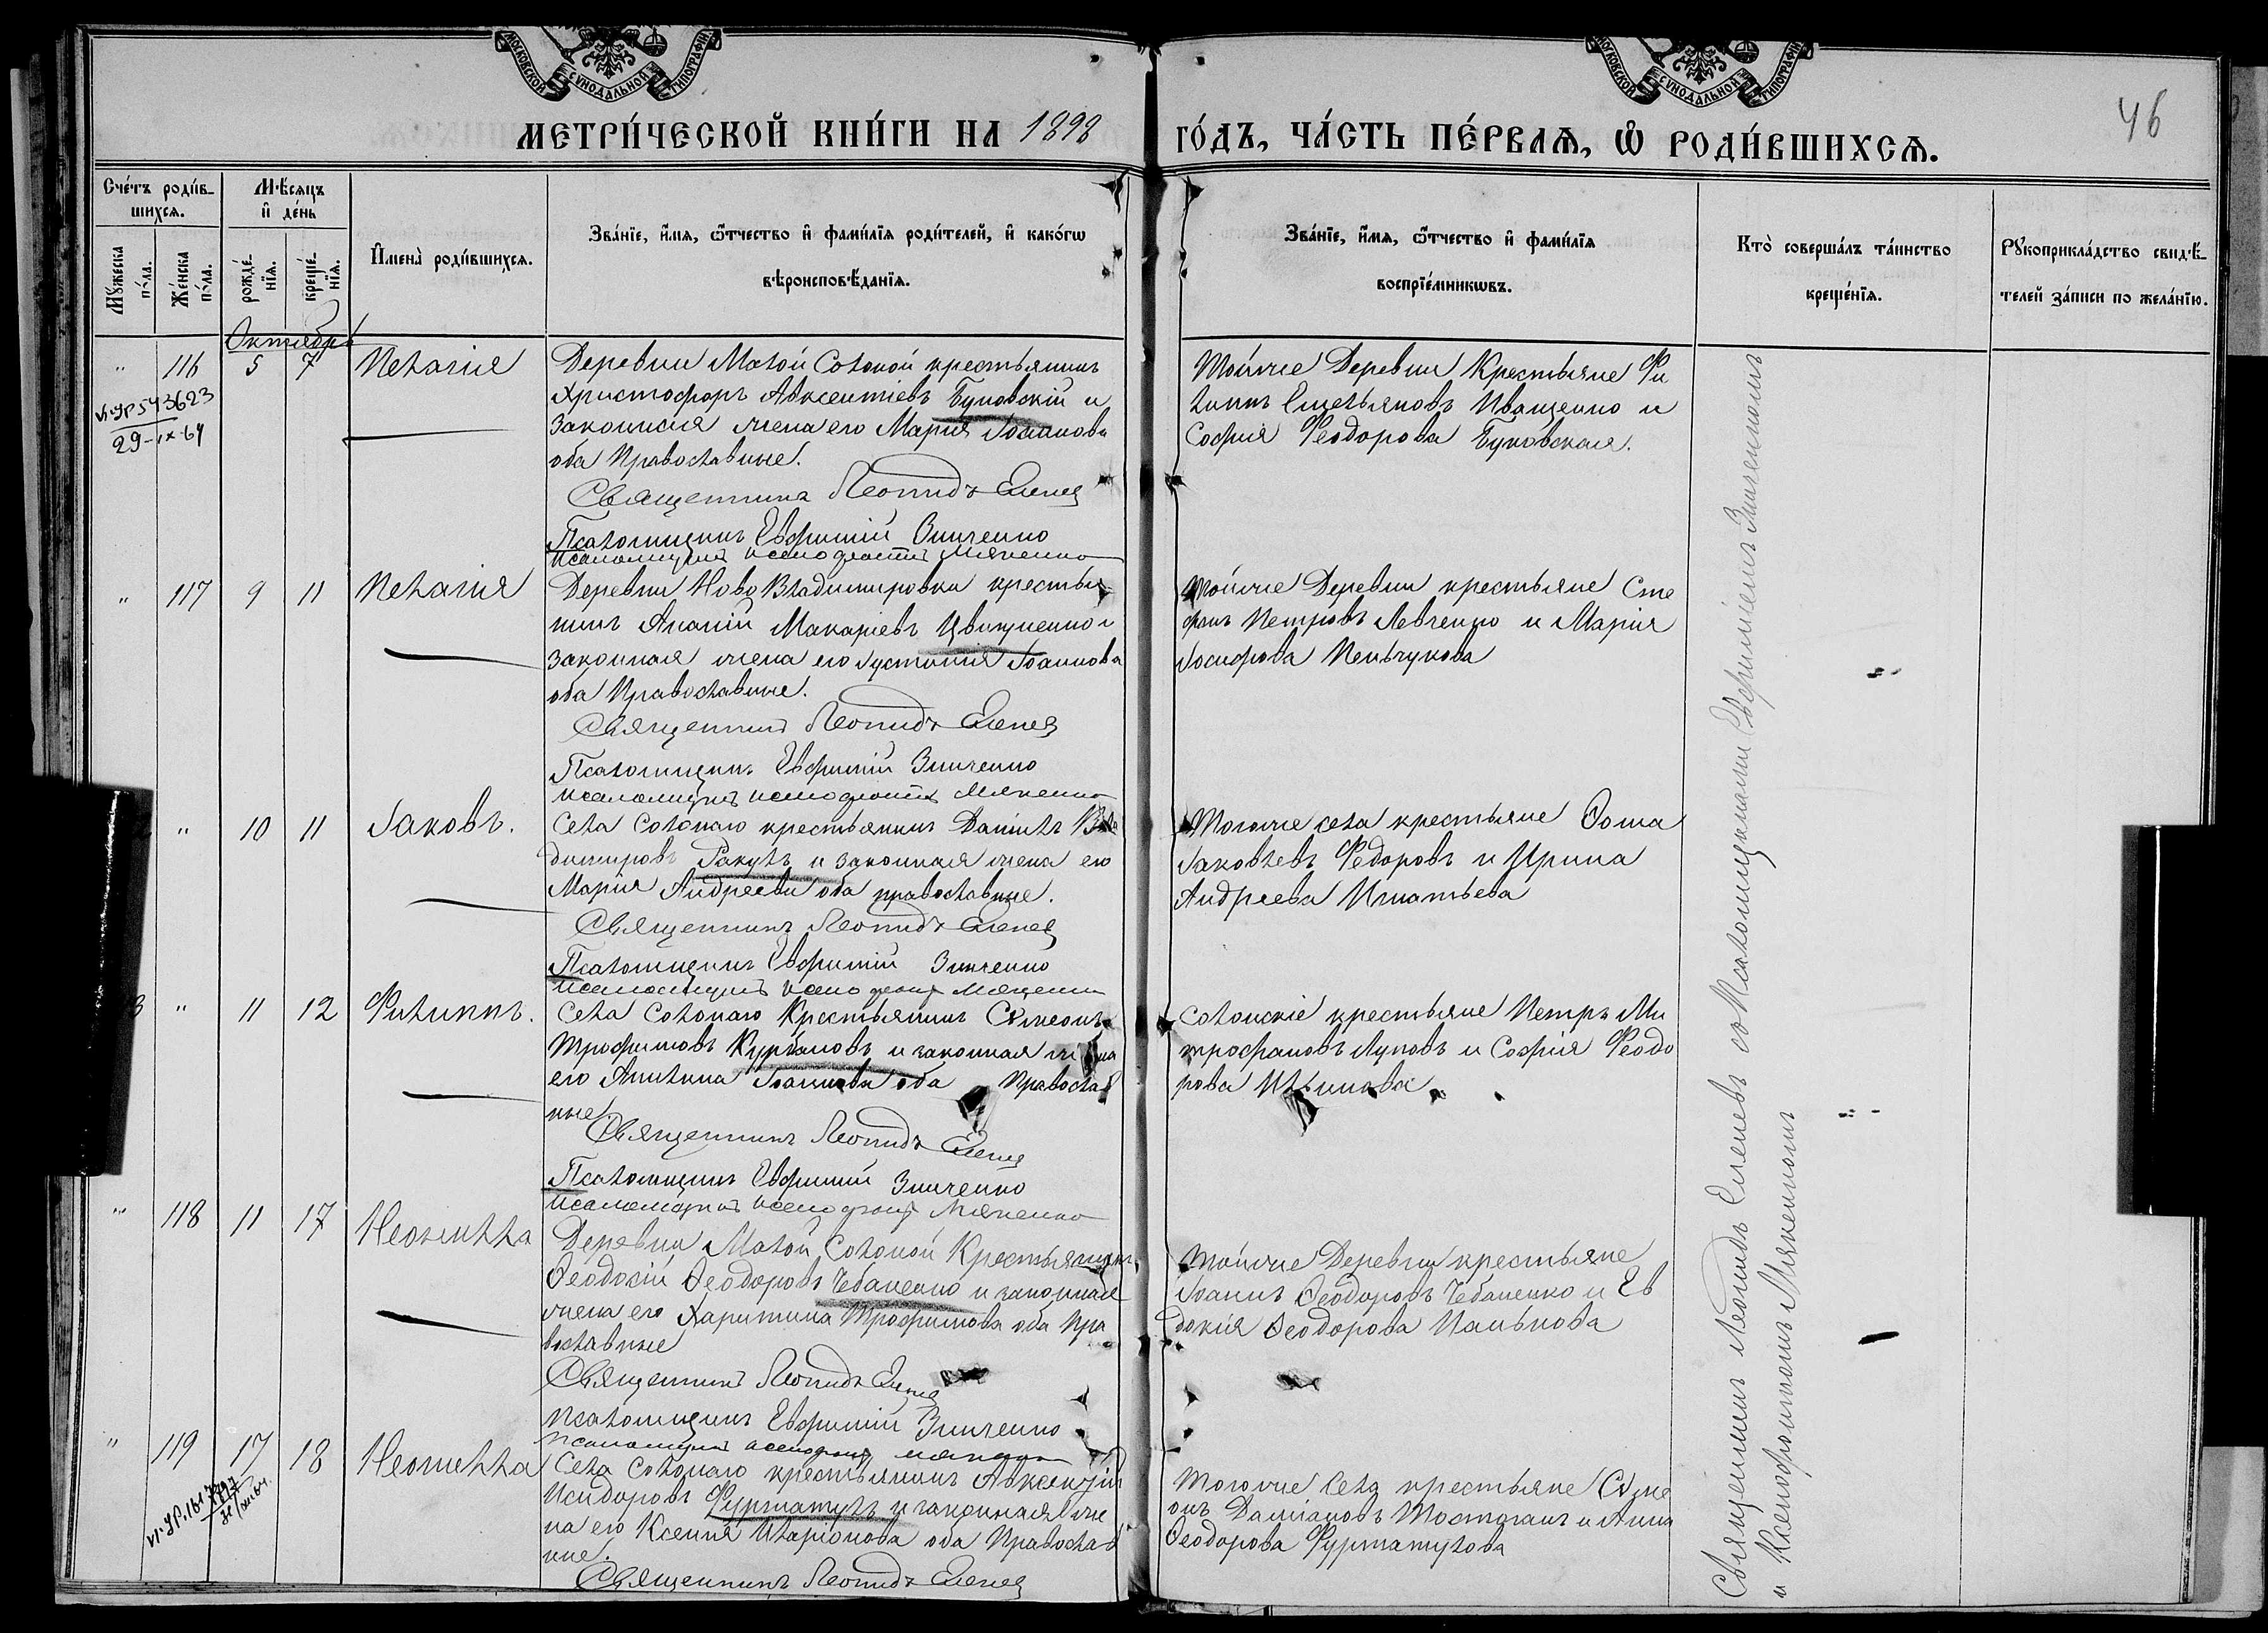 МОСКОВСКОЙ СУНОДАЛЬНОЙ ТИПОГРАФІИ
МОСКОВСКОЙ СУНОДАЛЬНОЙ ТИПОГРАФІИ
46
МЕТРИ́ЧЕСКОЙ КНИ́ГИ НА 1898 ГО́ДЪ, ЧА́СТЬ ПЕ́РВАѦ, Ѿ РОДИ́ВШИХСѦ.
Сче́тъ роди́в-
шихсѧ.
Мѣ́сѧцъ
и҆ де́нь
Мꙋ́жеска по́ла.
Же́нска по́ла.
рожде́-
нїѧ.
креще́-
нїѧ.
И҆мена̀ роди́вшихсѧ.
Зва́нїе, и҆́мѧ, ѻ҆́тчество и҆ фами́лїѧ роди́телей, и҆ како́гѡ
вѣроисповѣ́данїѧ.
Зва́нїе, и҆́мѧ, ѻ҆́тчество и҆ фами́лїѧ
воспрїе́мникѡвъ.
Кто̀ соверша́лъ та́инство
креще́нїѧ.
Рꙋкоприкла́дство свидѣ́-
телей за́писи по жела́нїю.
Октябрь
" 116 5 7 Пелагія
VI-УР 543623
29-IX-64
Деревни Малой Солоной крестьянинъ
Христофоръ Авксентіевъ Буковскій и
законная жена его Марія Іоанова
оба Православные.
Священникъ Леонидъ Еленев
Псаломщикъ Евфимій Зинченко
псаломщикъ Ксенофонтъ Мякенко
Тойже Деревни Крестьяне Фи
липпъ Емельяновъ Иващенко и
Софія Феодорова Буковская.
" 117 9 11 Пелагія
Деревни Ново Владимировки крестья
нинъ Ананій Макаріевъ и
законная жена его Іустинія Іоаннова
оба Православные.
Священникъ Леонидъ Еленев
Псаломщикъ Евфимій Зинченко
псаломщикъ Ксенофонтъ Мякенко
Тойже Деревни крестьяне Сте
фанъ Петровъ Левченко и Марія
Іосифова Пельчукова
" 10 11 Іаковъ.
Села Солонаго крестьянинъ Даніилъ Вла
димировъ Ракулъ и законная жена его
Марія Андреева оба православные.
Священникъ Леонидъ Еленев
Псаломщикъ Евфимій Зинченко
псаломщикъ Ксенофонтъ Мякенко
Тогоже села крестьяне Фома
Іаковлевъ Федоровъ и Ирина
Андреева Игнатьева
3 " 11 12 Филиппъ.
Села Солонаго Крестьянинъ Сѵмеонъ
Трофимовъ Курбановъ и законная жена
его Акилина Іоаннова оба Православ
ные
Священникъ Леонидъ Еленев
Псаломщикъ Евфимій Зинченко
псаломщикъ Ксенофонтъ Мякенко
Солонскіе крестьяне Петръ Ми
трофановъ Луповъ и Софія Феодо
рова
" 118 11 17 Неонилла
Деревни Малой Солоной Крестьянинъ
Ѳеодосій Ѳеодоровъ Чебаненко и законная
жена его Харитина Трофимова оба Пра
вославные
Священникъ Леонидъ Еленев
Псаломщикъ Евфимій Зинченко
псаломщикъ Ксенофонтъ Мякенко
Тойже Деревни крестьяне
Іоаннъ Ѳеодоровъ Чебаненко и Ев
докія Ѳеодорова Панькова
" 119 17 18 Неонилла
Села Солонаго крестьянинъ Авксентій
Исидоровъ Фурматулъ и законная же
на его Ксенія Иларіонова оба Православ
ные.
Священникъ Леонидъ Еленев
Тогоже Села крестьяне Сѵме
онъ Даміановъ Мостоганъ и Анна
Ѳеодорова Фурматулова
Священникъ Леонидъ Еленевъ со Псаломщиками Евфиміемъ Зинченкомъ
и Ксенофонтомъ Мякенкомъ